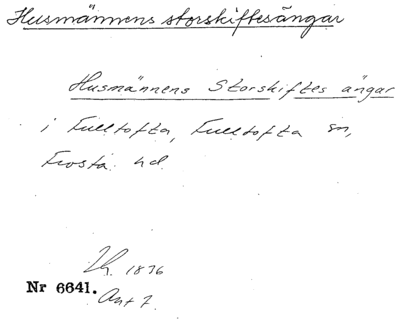 Husmännens storskiftesängar
Husmännens Storskiftes ängar
i Fulltofta, Fulltofta sn,
Frosta hd.
1876
Nr 6641.
Ant 7.